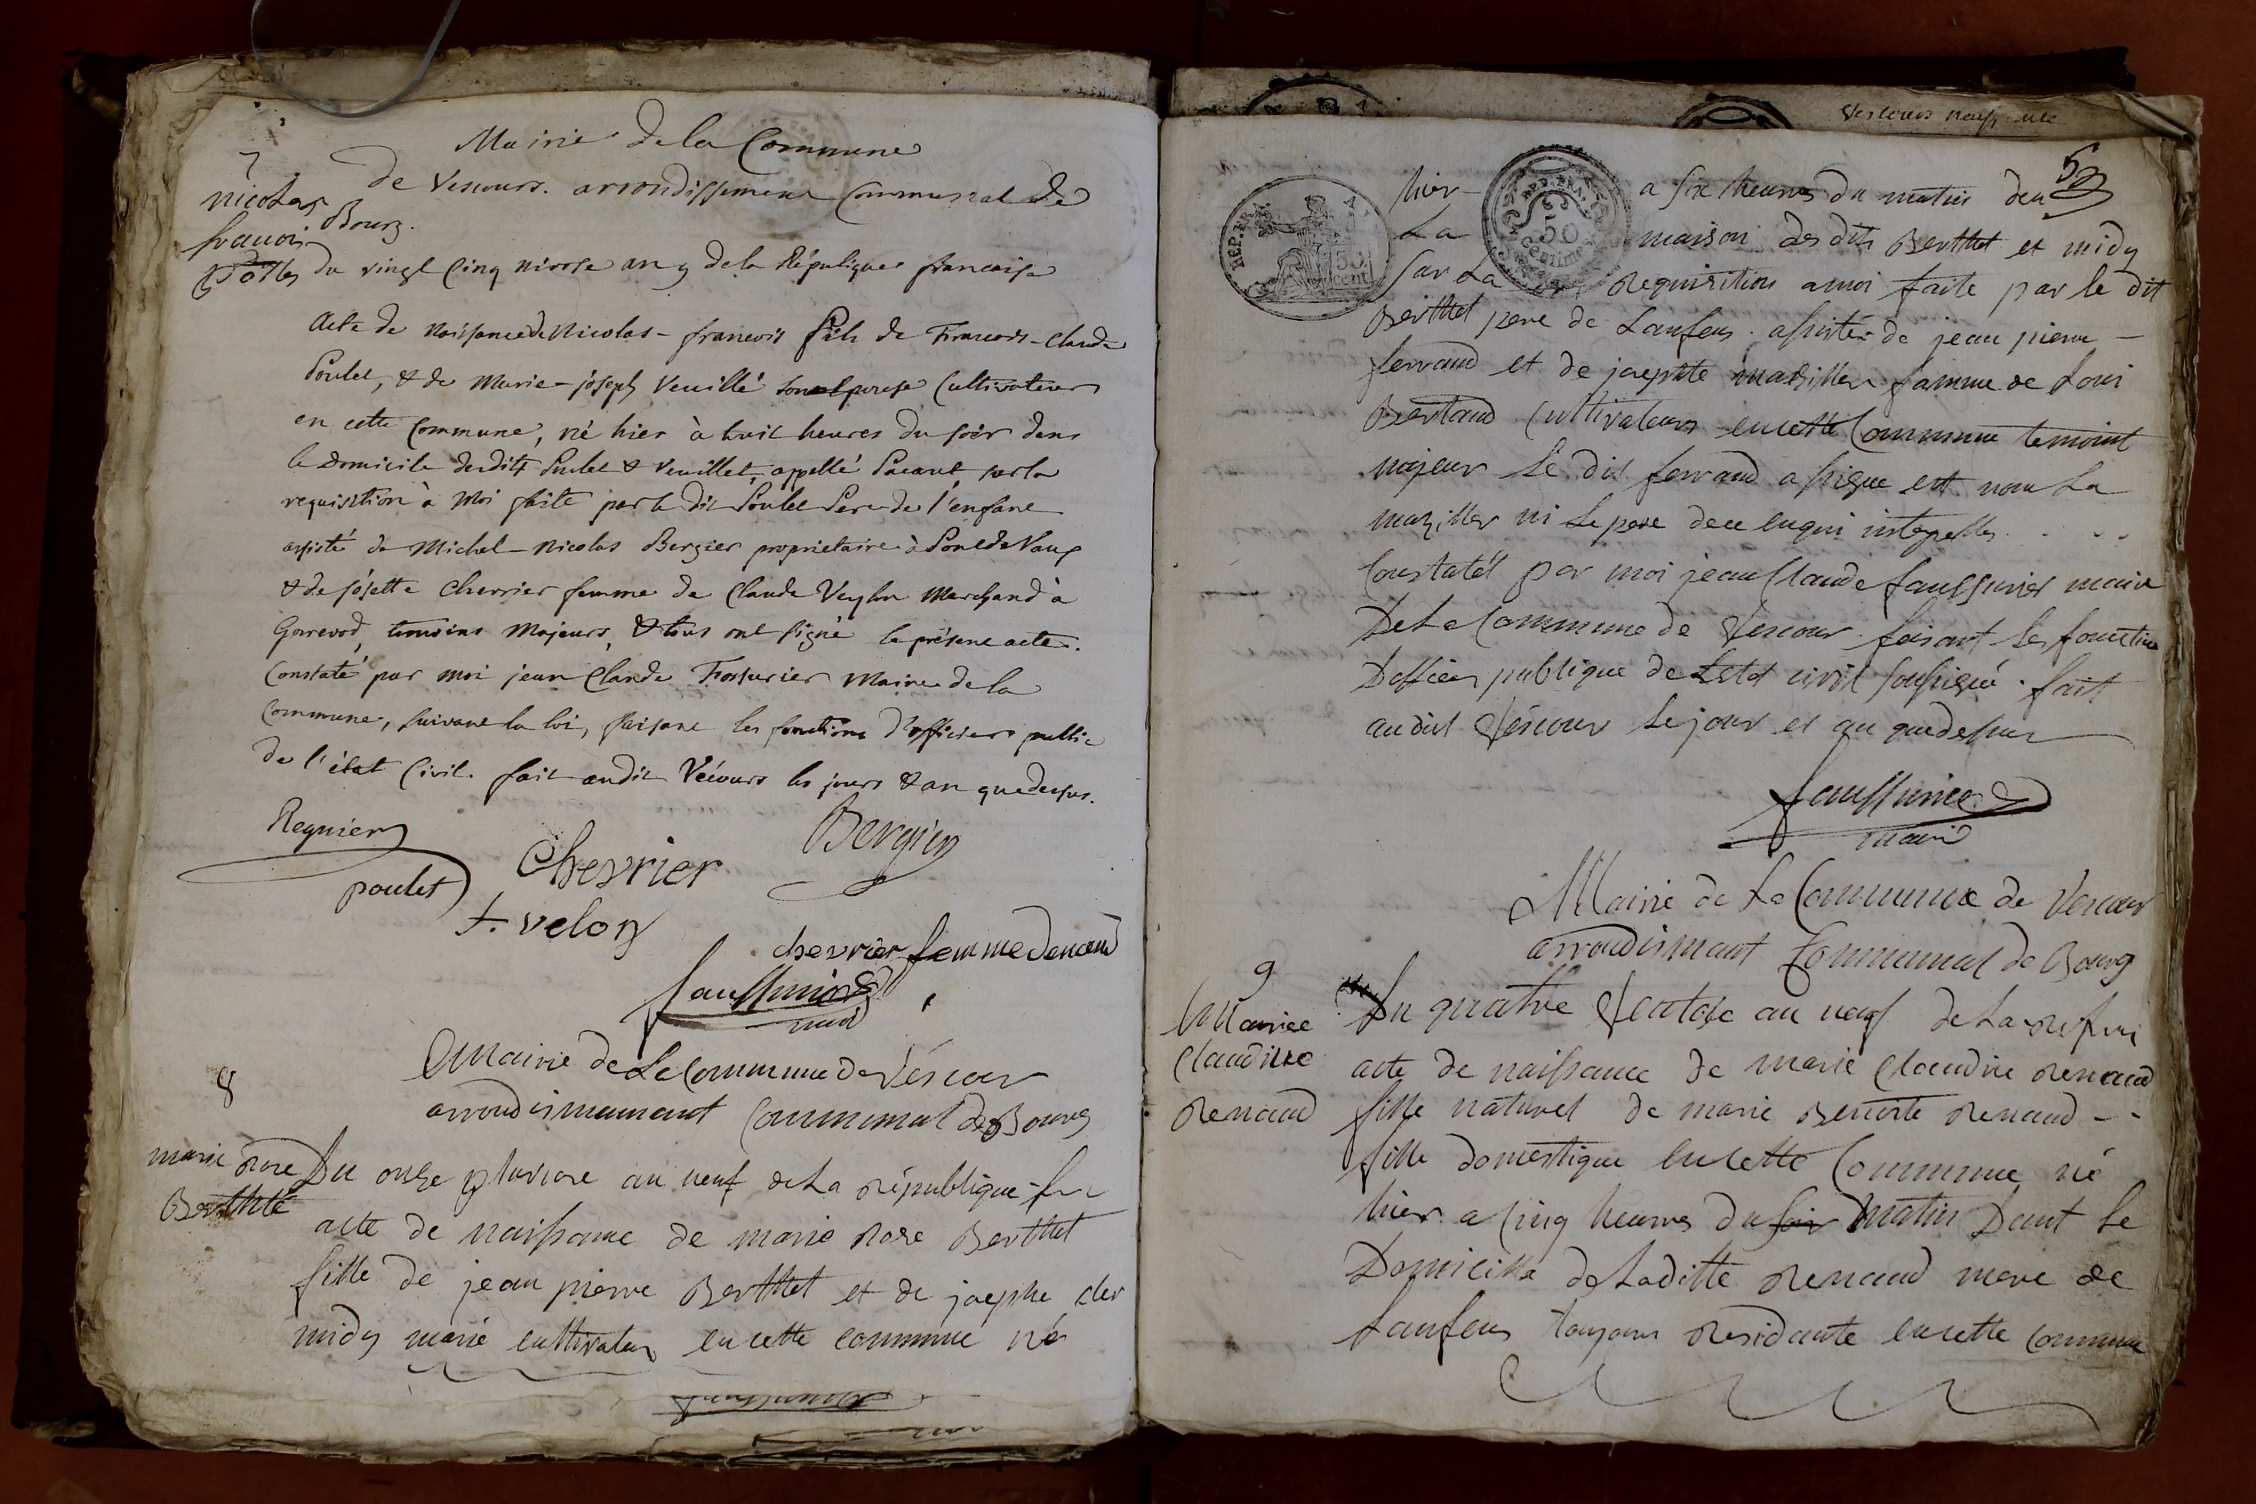 Mairie de la Commune
de Vescours. arrondissement Communal de
Bourg.
7
nicolas
francois
du vingt Cinq nivose an 9 de la Républiques francaise
Acte de Naissance de Nicolas - francois fils de Francois - Claude
Poulet, & de Marie - joseph Veuillé son epouse Cultivateurs
en cette Commune, né hier à huit heures du soir dans
le Domicile desdits Poulet & Veuillet, appellé sur la
requisition à Moi faite par le dit Poulet Pere de l'enfant
assisté de Michel - Nicolas Bergier propriétaire à Pont de Vaux
& de josette Chevrier femme de Claude Marchand à
Gorrevod, temoins Majeurs, & tous ont signé le présent acte.
Constaté par moi jean Claude Fossurier Maire de la
Commune, suivant la loi, faisant les fonctions d'officier public
de l'état Civil. fait audit Vécours les jours & an que dessus.
Requier
poulet
Chevrier
Bergier
f. velon
chevrier femme
faussurier
maire
8
Mairie de La Commune de Véscour
arrondismamant Communal de Bourg
marie rose
Berthte
Du onze pluviose an neuf de La république fr
acte de naissance de marie rose Berthet
fille de jean pierre Berthet et de josephe
midy marié cultivateur en cette commune né
Vescours naiss
53
REP. FRA.
50
centimes
hier a six heures du matin dan
La maison des dits Berthet et midy
sur La requisition a moi faite par le dit
Berthet pere de Lanfens. assisté de jean pierre -
ferrand et de josephte mazillier famme de Loui
Bertaud Cultivateurs en cette Commune temoint
majeur Le dit ferrand a signe et non La
mazillier ni Le pere de ce enqui interpelles . . . .
Constatét par moi jean Claude faussurier maire
De La Commune de Vescour faisant Les fonction
Dofficier publique de Letat civil soussigné. fait
audit Véscour Le jour et an que dessus
faussurier
maire
Mairie de La Commune de Vescour
arrondismant Communal de Bourg
9
Marie
Claudine
Renaud
Du quatre Ventose an neuf de La
acte de naissance de marie Claudine renaud
fille naturel de marie Benoite renaud - -
fille domestique en cette Commune né
hier a cinq heures du soir matin Dant Le
Domicille de Laditte renaud mere de
Lanfens toujours residante en cette commune